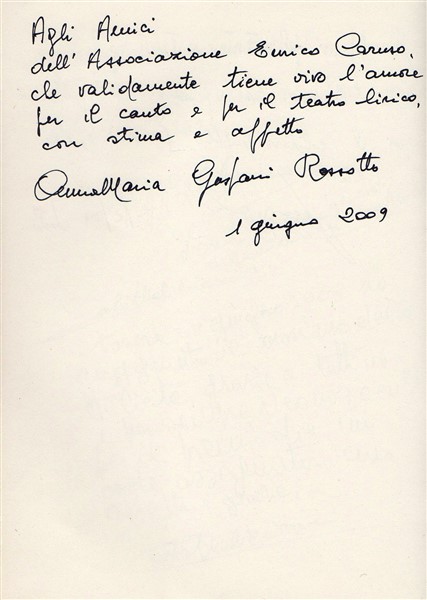 Agli Amici
dell'Associazione Enrico Caruso,
che validamente tiene vivo l'amore
per il canto e per il teatro lirico,
con stima e affetto
AnnaMaria Gaspari Rossotto
1 giugno 2009